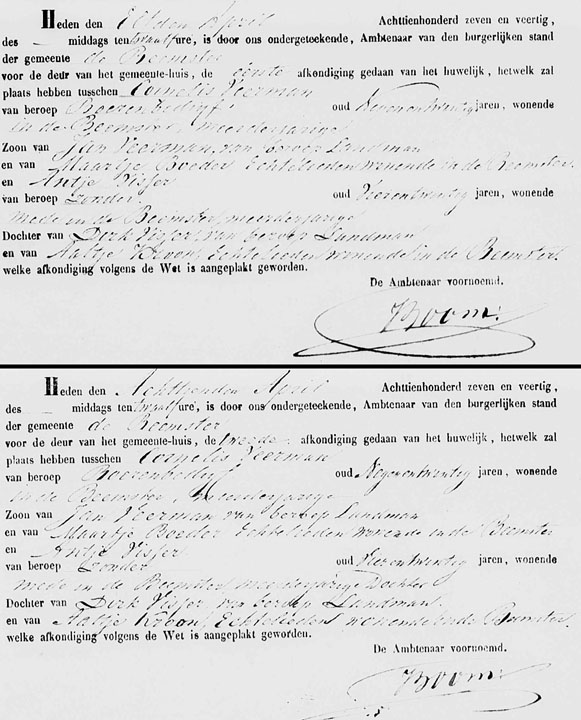 Heden den Elfden April Achttienhonderd zeven en veertig,
des — middags ten twaalf ure, is door ons ondergeteekende, Ambtenaar van den burgerlijken stand
der gemeente de Beemster
voor de deur van het gemeente-huis, de eerste afkondiging gedaan van het huwelijk, hetwelk zal
plaats hebben tusschen Cornelis Veerman
van beroep Boerenbedrijf oud Negenentwintig jaren, wonende
in de Beemster, meerderjarige
Zoon van Jan Veerman, van beroep Landman
en van Maartje Boeder Echtelieden wonende in de Beemster
en Antje Visser
van beroep Zonder oud Vierentwintig jaren, wonende
mede in de Beemster meerderjarige
Dochter van Dirk Visser, van beroep Landman
en van Aaltje Kroon, Echtelieden wonende in de Beemster.
welke afkondiging volgens de Wet is aangeplakt geworden.
De Ambtenaar voornoemd.
Boom
Heden den Achttienden April Achttienhonderd zeven en veertig,
des — middags ten twaalf ure, is door ons ondergeteekende, Ambtenaar van den burgerlijken stand
der gemeente de Beemster
voor de deur van het gemeente-huis, de tweede afkondiging gedaan van het huwelijk, hetwelk zal
plaats hebben tusschen Cornelis Veerman
van beroep Boerenbedrijf oud Negenentwintig jaren, wonende
in de Beemster, meerderjarige
Zoon van Jan Veerman van beroep Landman
en van Maartje Boeder Echtelieden wonende in de Beemster
en Antje Visser
van beroep Zonder oud Vierentwintig jaren, wonende
mede in de Beemster meerderjarige Dochter
Dochter van Dirk Visser van beroep Landman.
en van Aaltje Kroon, Echtelieden wonende in de Beemster
welke afkondiging volgens de Wet is aangeplakt geworden.
De Ambtenaar voornoemd.
Boom